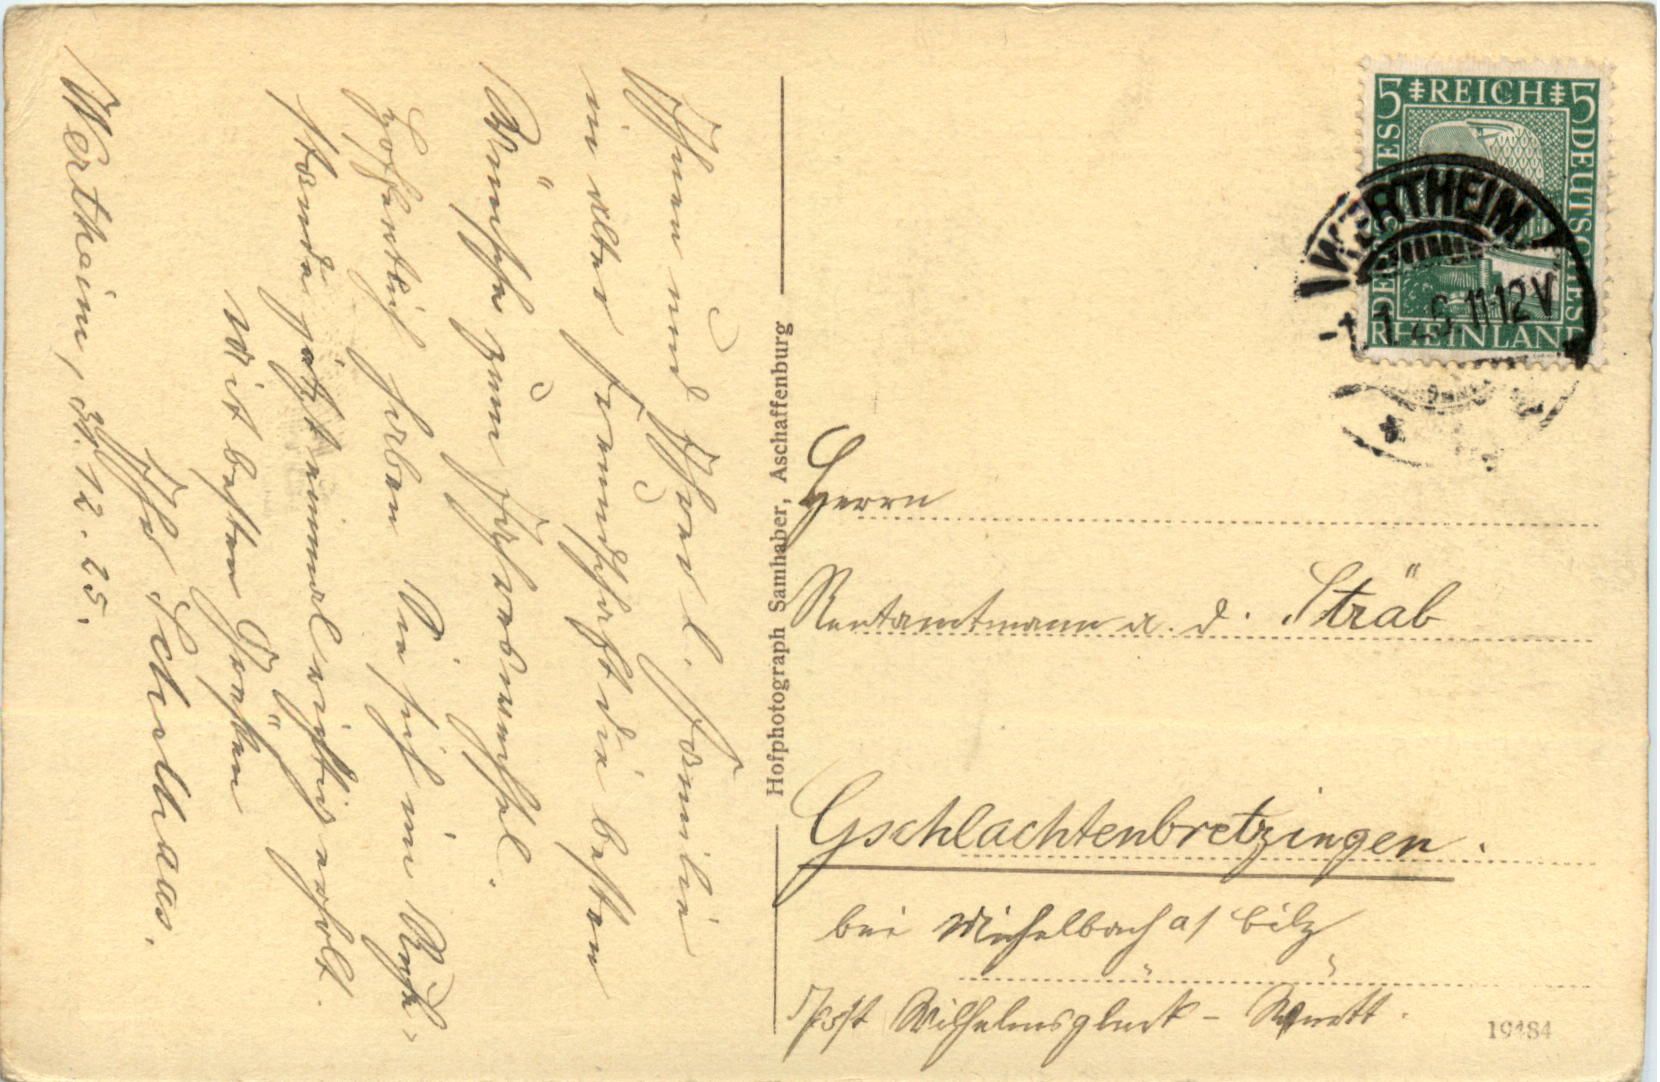 Ihnen und Ihrer l. Familie
in alter Freundschaft die besten
Wünsche zum Jahreswechsel.
Hoffentlich haben Sie sich im Ruhe-
stande jetzt einmal richtig erholt.
Mit besten Grüßen
Ihr Schulhaas.
Wertheim, 31.12.25.
Hofphotograph Samhaber, Aschaffenburg
5 REICH 5
DEUTSCHES
RHEINLAND
WERTHEIM
11-12 V
Herrn
Rentamtmann a. d. Sträb
Gschlachtenbretzingen.
bei Michelbach a/ Bilz
Post Wilhelmsglück - Württ.
19484